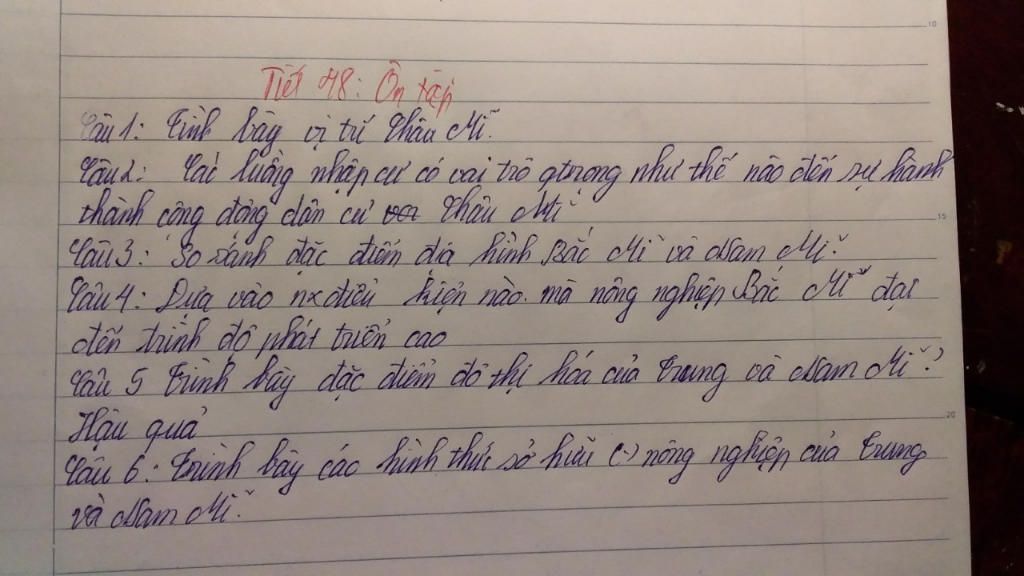 10
Tiết 48: Ôn tập
Câu 1: Trình bày vị trí Châu Mĩ.
Câu 2: Các luồng nhập cư có vai trò qtrong như thế nào đến sự hình
thành cộng đồng dân cư Châu Mĩ
15
Câu 3: So sánh đặc điểm địa hình Bắc Mĩ và Nam Mĩ.
Câu 4: Dựa vào nx điều kiện nào mà nông nghiệp Bắc Mĩ đạt
đến trình độ phát triển cao
Câu 5 Trình bày đặc điểm đô thị hóa của Trung và Nam Mĩ?
20
Hậu quả
Câu 6: Trình bày các hình thức sở hữu (-) nông nghiệp của Trung
và Nam Mĩ.